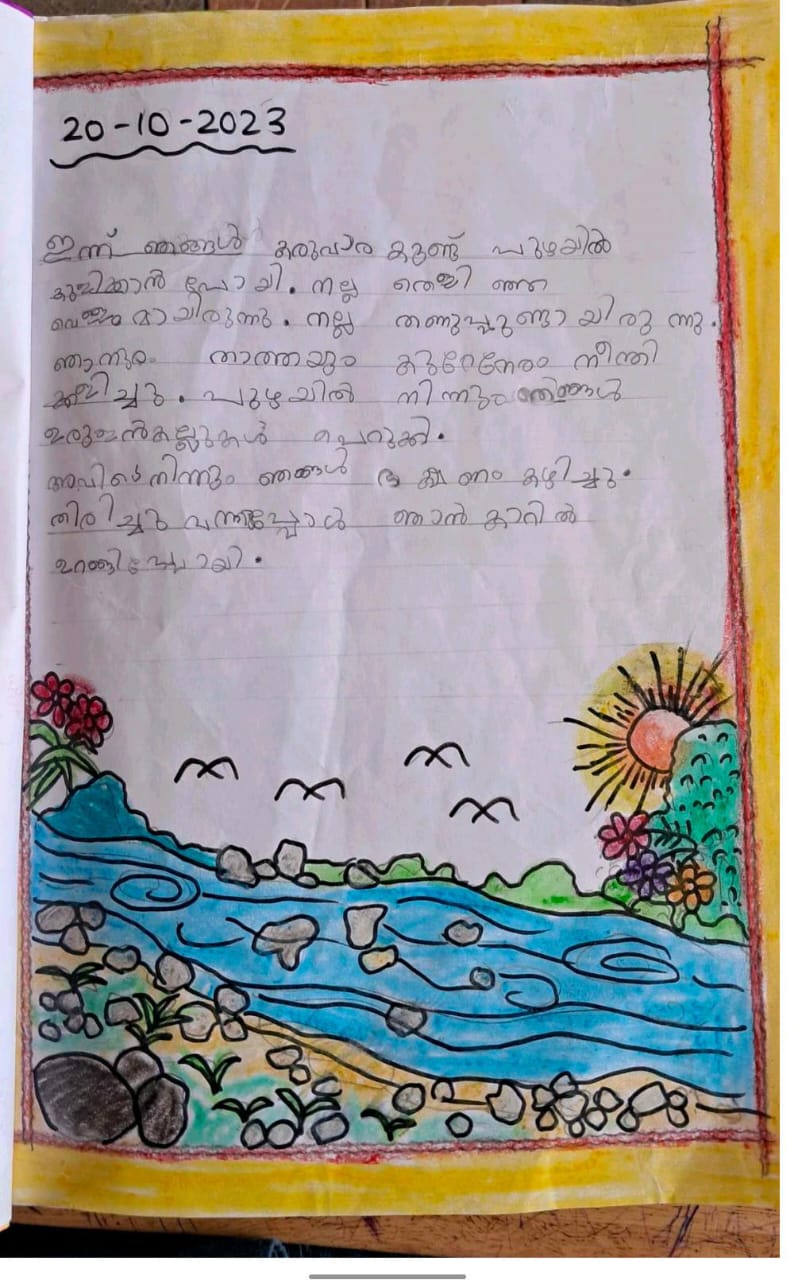 20-10-2023
ഇന്ന് ഞങ്ങൾ കരുവാര കുണ്ട് പുഴയിൽ
കുളിക്കാൻ പോയി. നല്ല തെളി ഞ്ഞ
വെള്ളമായിരുന്നു. നല്ല തണുപ്പുണ്ടായിരു ന്നു.
ഞാനും താത്തയും കുറേനേരം നീന്തി
കളിച്ചു. പുഴയിൽ നിന്നും ഞങ്ങൾ
ഉരുളൻകല്ലുകൾ പെറുക്കി.
അവിടെനിന്നും ഞങ്ങൾ ഭക്ഷണം കഴിച്ചു.
തിരിച്ചു വന്നപ്പോൾ ഞാൻ കാറിൽ
ഉറങ്ങിപ്പോയി.